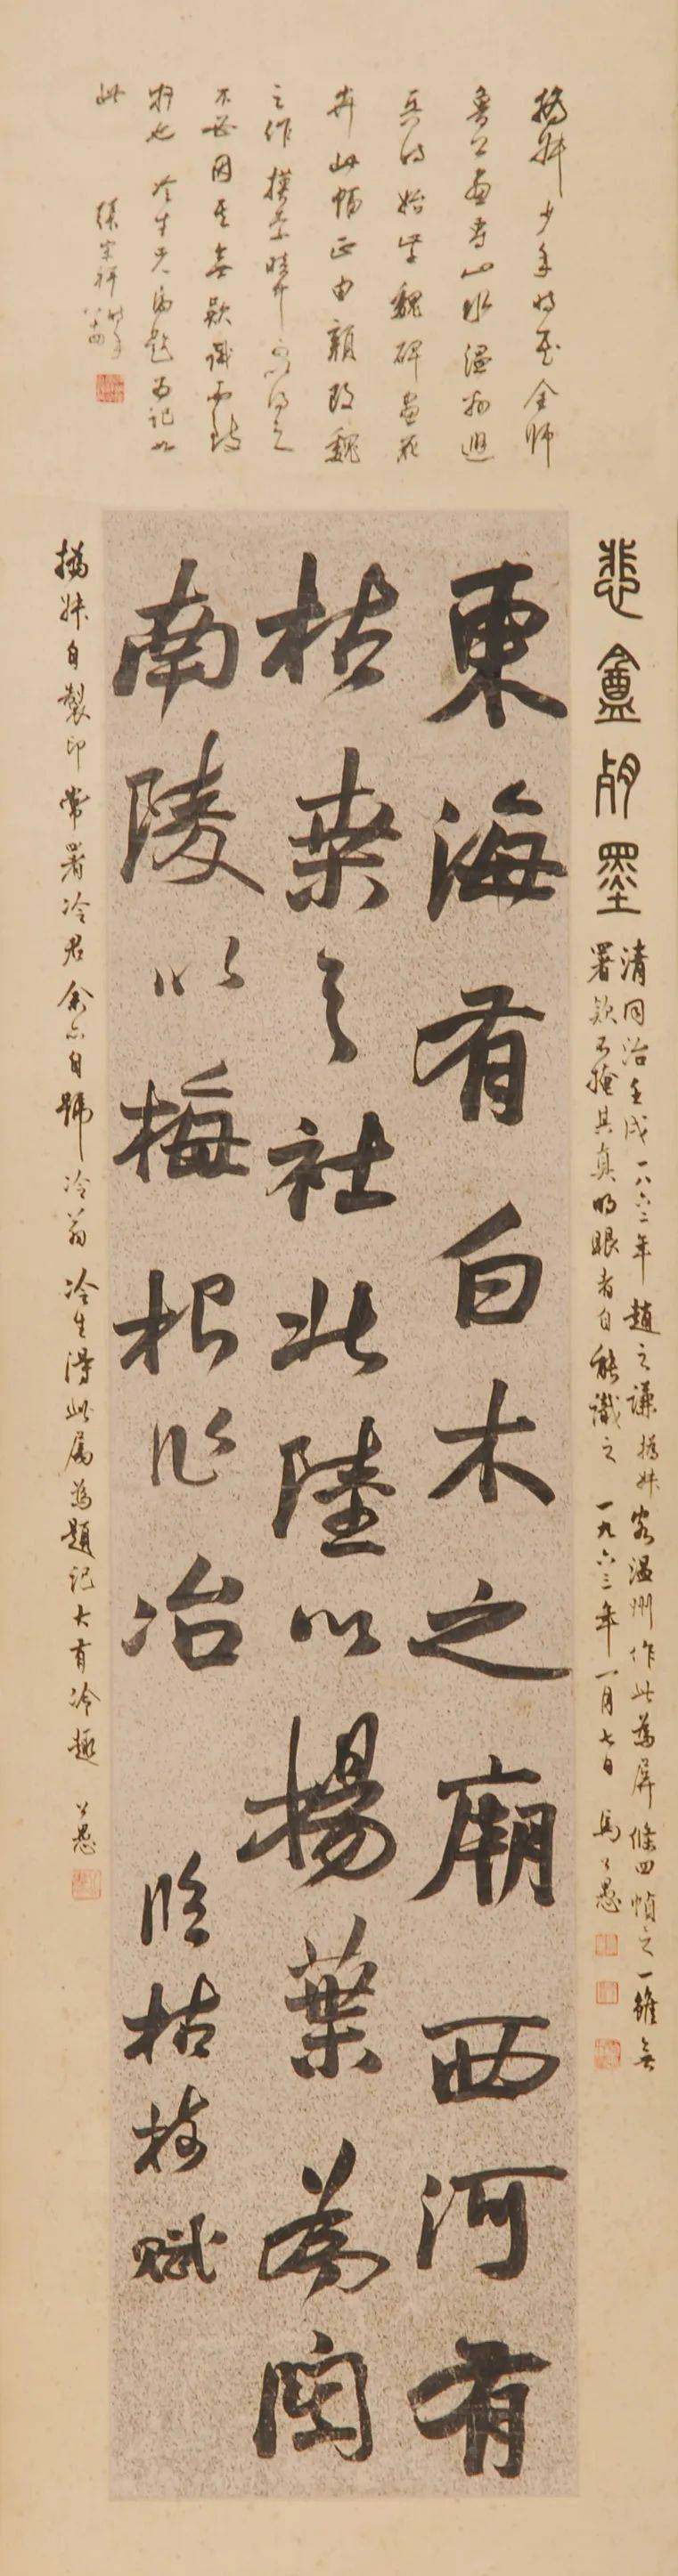 撝叔少年時書全師
魯公畫專山水溫州避
兵時始學魏碑畫花
卉此幅正由顏改魏
之作
不必因其無款識而疑
冷生先生屬題為記如
此
張宋祥
悲盦賸墨
清同治壬戌一八六二年趙之謙撝叔客溫州作此為屏條四幀之一雖無
署款不掩其真明眼者自能識之 一九六三年一月七日 馬公愚
東海有白木之廟西河有
枯桒之社北陸以楊葉為関
南陵以梅根作冶
臨枯樹賦
撝叔自製印常署冷君余亦自號冷翁冷生得此屬為題記大有冷趣 公愚